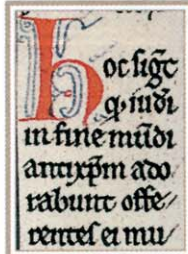 hoc sigc̄
ꝙ iudi
in fine mūdi
antixp̄m ado
rabunt offe/
rentes ei mu/